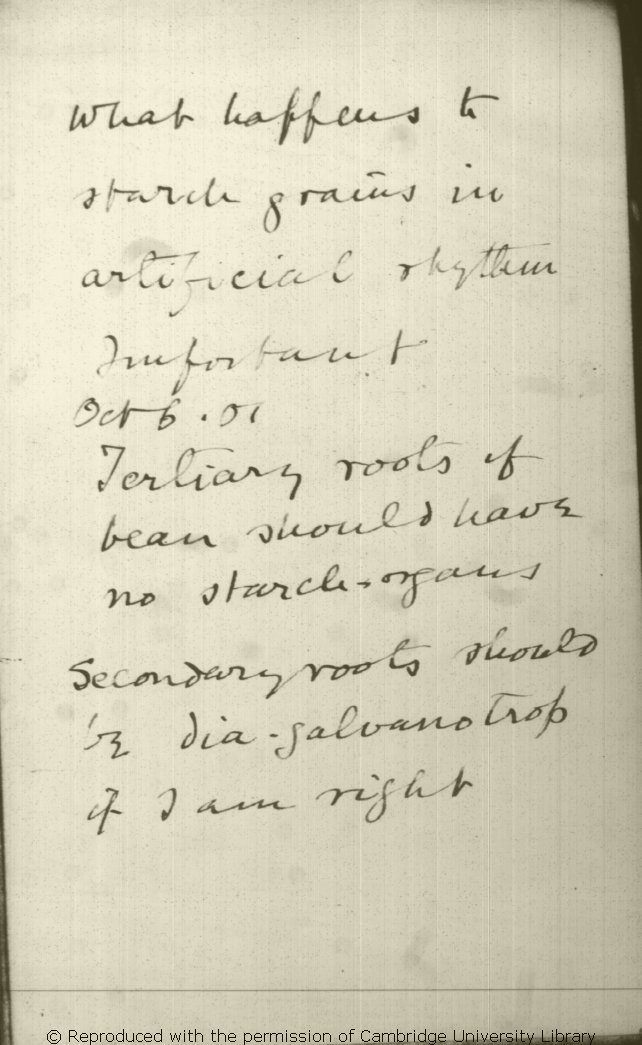 What happens to
starch grains in
artificial rhythm
Important
Oct 6. 01
Tertiary roots of
bean should have
no starch-organs
Secondary roots should
be dia-galvanotrop
if I am right
© Reproduced with the permission of Cambridge University Library